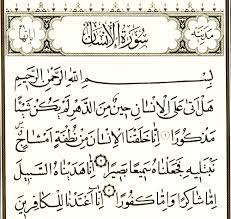 مدنية سُورَةُ الْإِنْسَانِ آياتها
بِسْمِ اللَّهِ الرَّحْمَٰنِ الرَّحِيمِ
هَلْ أَتَىٰ عَلَى الْإِنْسَانِ حِينٌ مِنَ الدَّهْرِ لَمْ يَكُنْ شَيْئًا
مَذْكُورًا إِنَّا خَلَقْنَا الْإِنْسَانَ مِنْ نُطْفَةٍ أَمْشَاجٍ
نَبْتَلِيهِ فَجَعَلْنَاهُ سَمِيعًا بَصِيرًا إِنَّا هَدَيْنَاهُ السَّبِيلَ
إِمَّا شَاكِرًا وَإِمَّا كَفُورًا إِنَّا أَعْتَدْنَا لِلْكَافِرِينَ